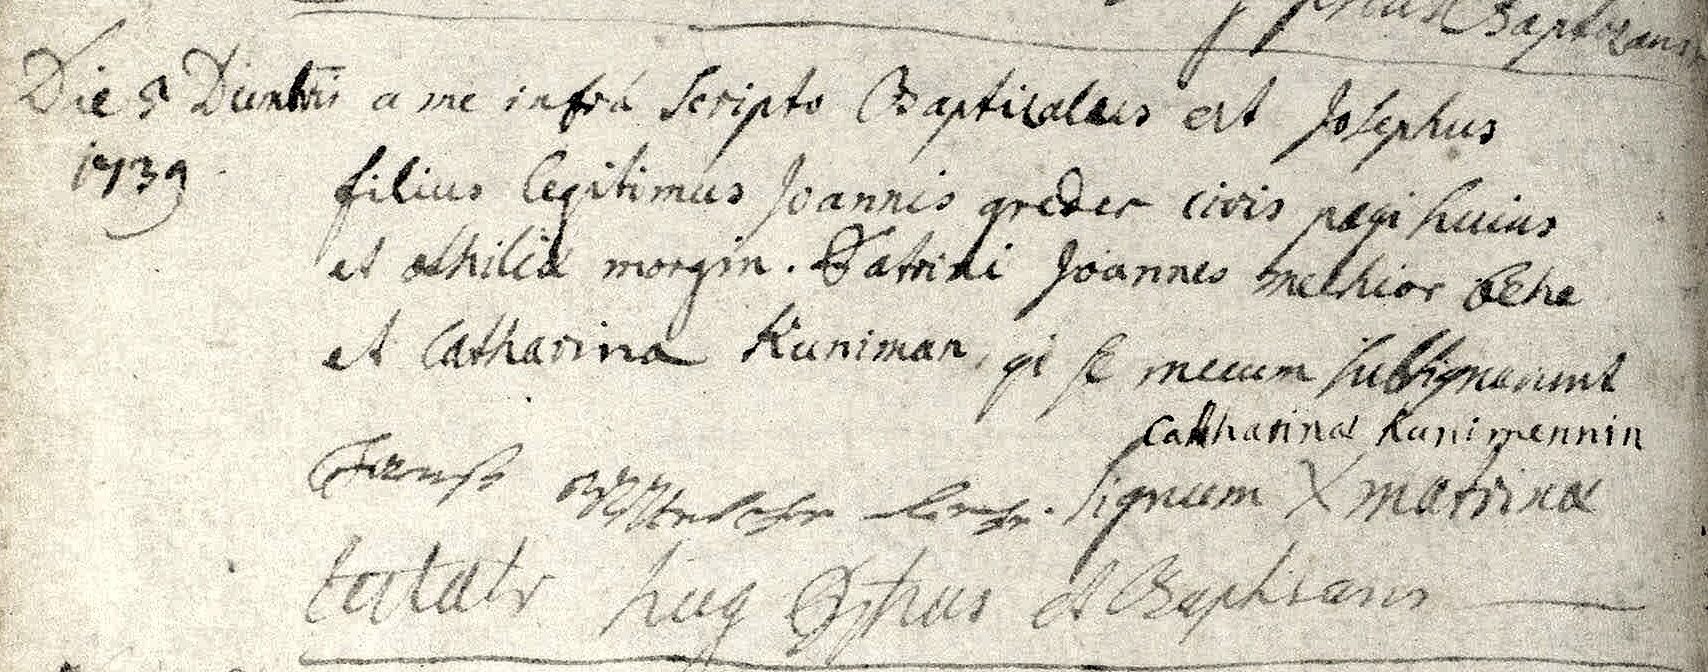 Baptizans
Die 5 a me infrà scripto Baptizatus est Josephus
1739 filius legitimus Joannis greder civis pagi huius
et othiliæ morgin. Patrini Joannes melchior
et Catharina Kuniman, qi se mecum subsignarunt
Catharina Kunimennin
signum X matrinæ
testatr hug et Baptizans